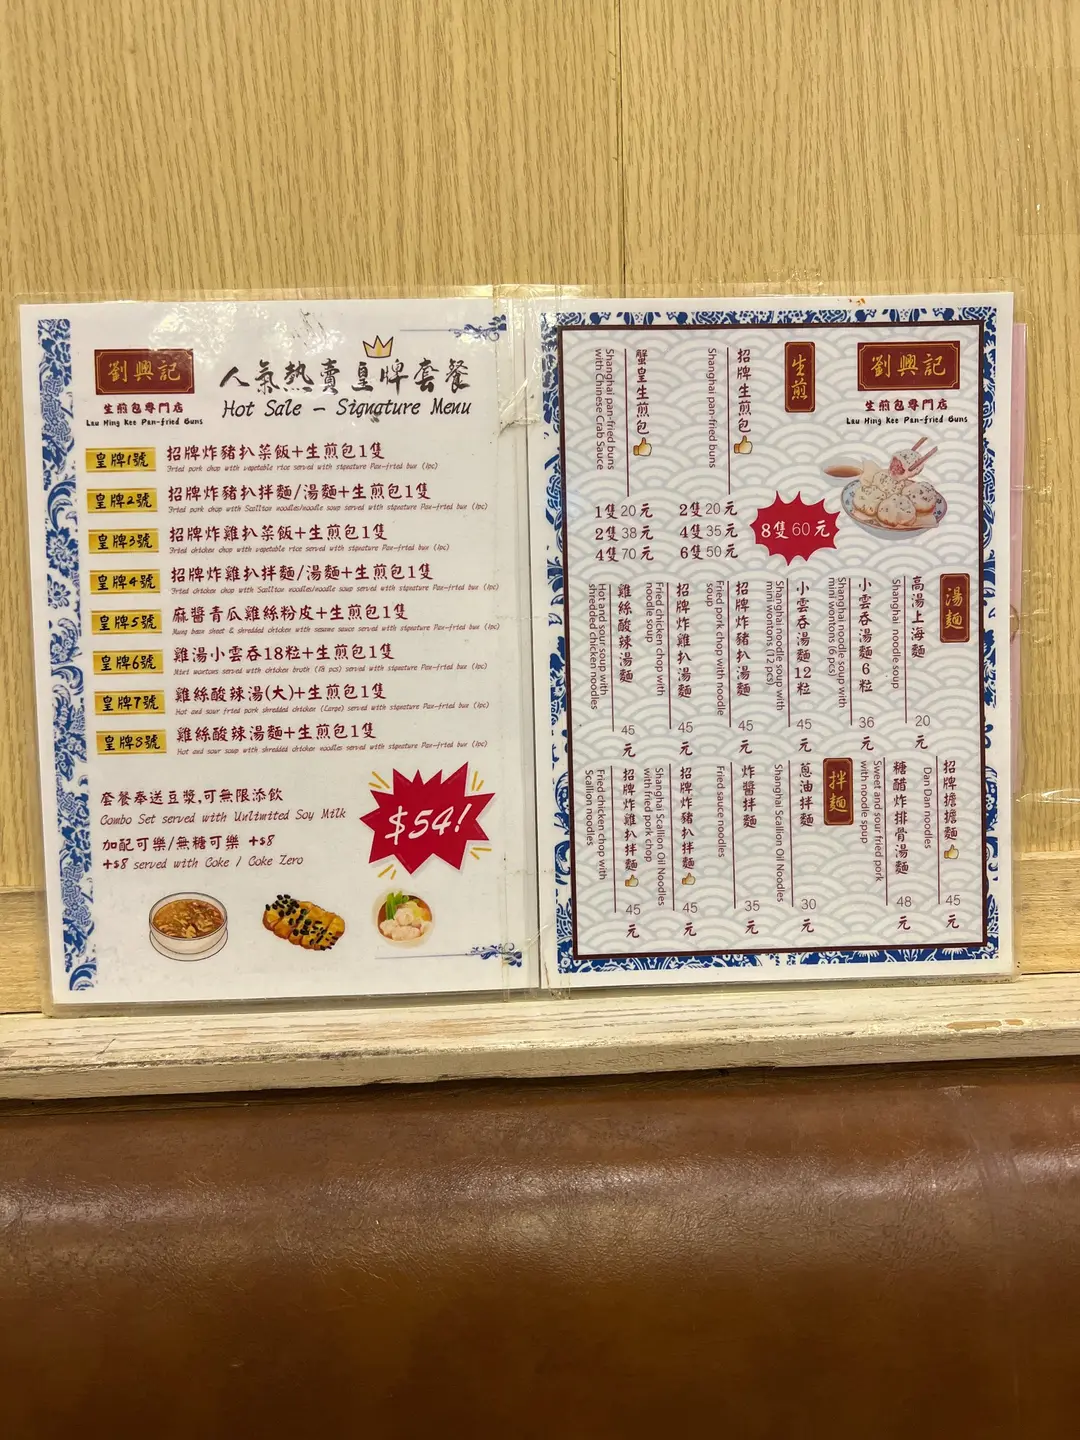 劉興記
生煎包專門店
Lau Hing Kee Pan-fried Buns
人氣熱賣皇牌套餐
Hot Sale – Signature Menu
皇牌1號
招牌炸豬扒菜飯+生煎包1隻
Fried pork chop with vegetable rice served with signature Pan-fried bun (1pc)
皇牌2號
招牌炸豬扒拌麵/湯麵+生煎包1隻
Fried pork chop with Scallion noodles/noodle soup served with signature Pan-fried bun (1pc)
皇牌3號
招牌炸雞扒菜飯+生煎包1隻
Fried chicken chop with vegetable rice served with signature Pan-fried bun (1pc)
皇牌4號
招牌炸雞扒拌麵/湯麵+生煎包1隻
Fried chicken chop with Scallion noodles/noodle soup served with signature Pan-fried bun (1pc)
皇牌5號
麻醬青瓜雞絲粉皮+生煎包1隻
Mung bean sheet & shredded chicken with sesame sauce served with signature Pan-fried bun (1pc)
皇牌6號
雞湯小雲吞18粒+生煎包1隻
Mini wontons served with chicken broth (18 pcs) served with signature Pan-fried bun (1pc)
皇牌7號
雞絲酸辣湯(大)+生煎包1隻
Hot and sour fried pork shredded chicken (Large) served with signature Pan-fried bun (1pc)
皇牌8號
雞絲酸辣湯麵+生煎包1隻
Hot and sour soup with shredded chicken noodles served with signature Pan-fried bun (1pc)
套餐奉送豆漿,可無限添飲
Combo Set served with Unlimited Soy Milk
加配可樂/無糖可樂 +$8
+$8 served with Coke / Coke Zero
$54!
劉興記
生煎包專門店
Lau Hing Kee Pan-fried Buns
生煎
招牌生煎包
Shanghai pan-fried buns
2隻20元
4隻35元
6隻50元
8隻60元
蟹皇生煎包
Shanghai pan-fried buns
with Chinese Crab Sauce
1隻20元
2隻38元
4隻70元
湯麵
高湯上海麵
Shanghai noodle soup
20元
小雲吞湯麵6粒
Shanghai noodle soup with
mini wontons (6 pcs)
36元
小雲吞湯麵12粒
Shanghai noodle soup with
mini wontons (12 pcs)
45元
招牌炸豬扒湯麵
Fried pork chop with noodle
soup
45元
招牌炸雞扒湯麵
Fried chicken chop with
noodle soup
45元
雞絲酸辣湯麵
Hot and sour soup with
shredded chicken noodles
45元
招牌擔擔麵
Dan Dan noodles
45元
糖醋炸排骨湯麵
Sweet and sour fried pork
with noodle soup
48元
拌麵
蔥油拌麵
Shanghai Scallion Oil Noodles
30元
炸醬拌麵
Fried sauce noodles
35元
招牌炸豬扒拌麵
Shanghai Scallion Oil Noodles
with fried pork chop
45元
招牌炸雞扒拌麵
Fried chicken chop with
Scallion noodles
45元